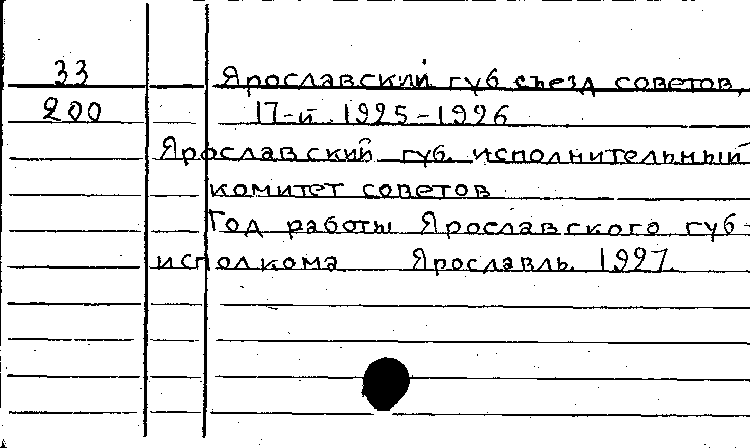 33 Ярославский губ. съезд советов,
200 17-й. 1925-1926
Ярославский губ. исполнительный
комитет советов
Год работы Ярославского губ-
исполкома Ярославль. 1927.